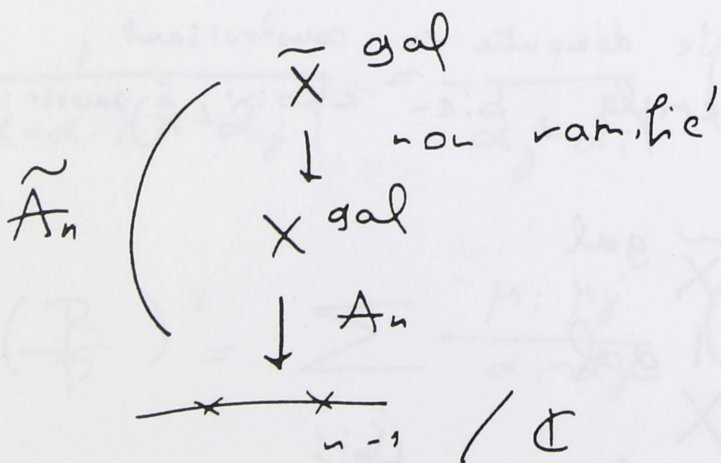 X̃ gal
non ramifié
Ãn
X gal
An
n-1 / ℂ